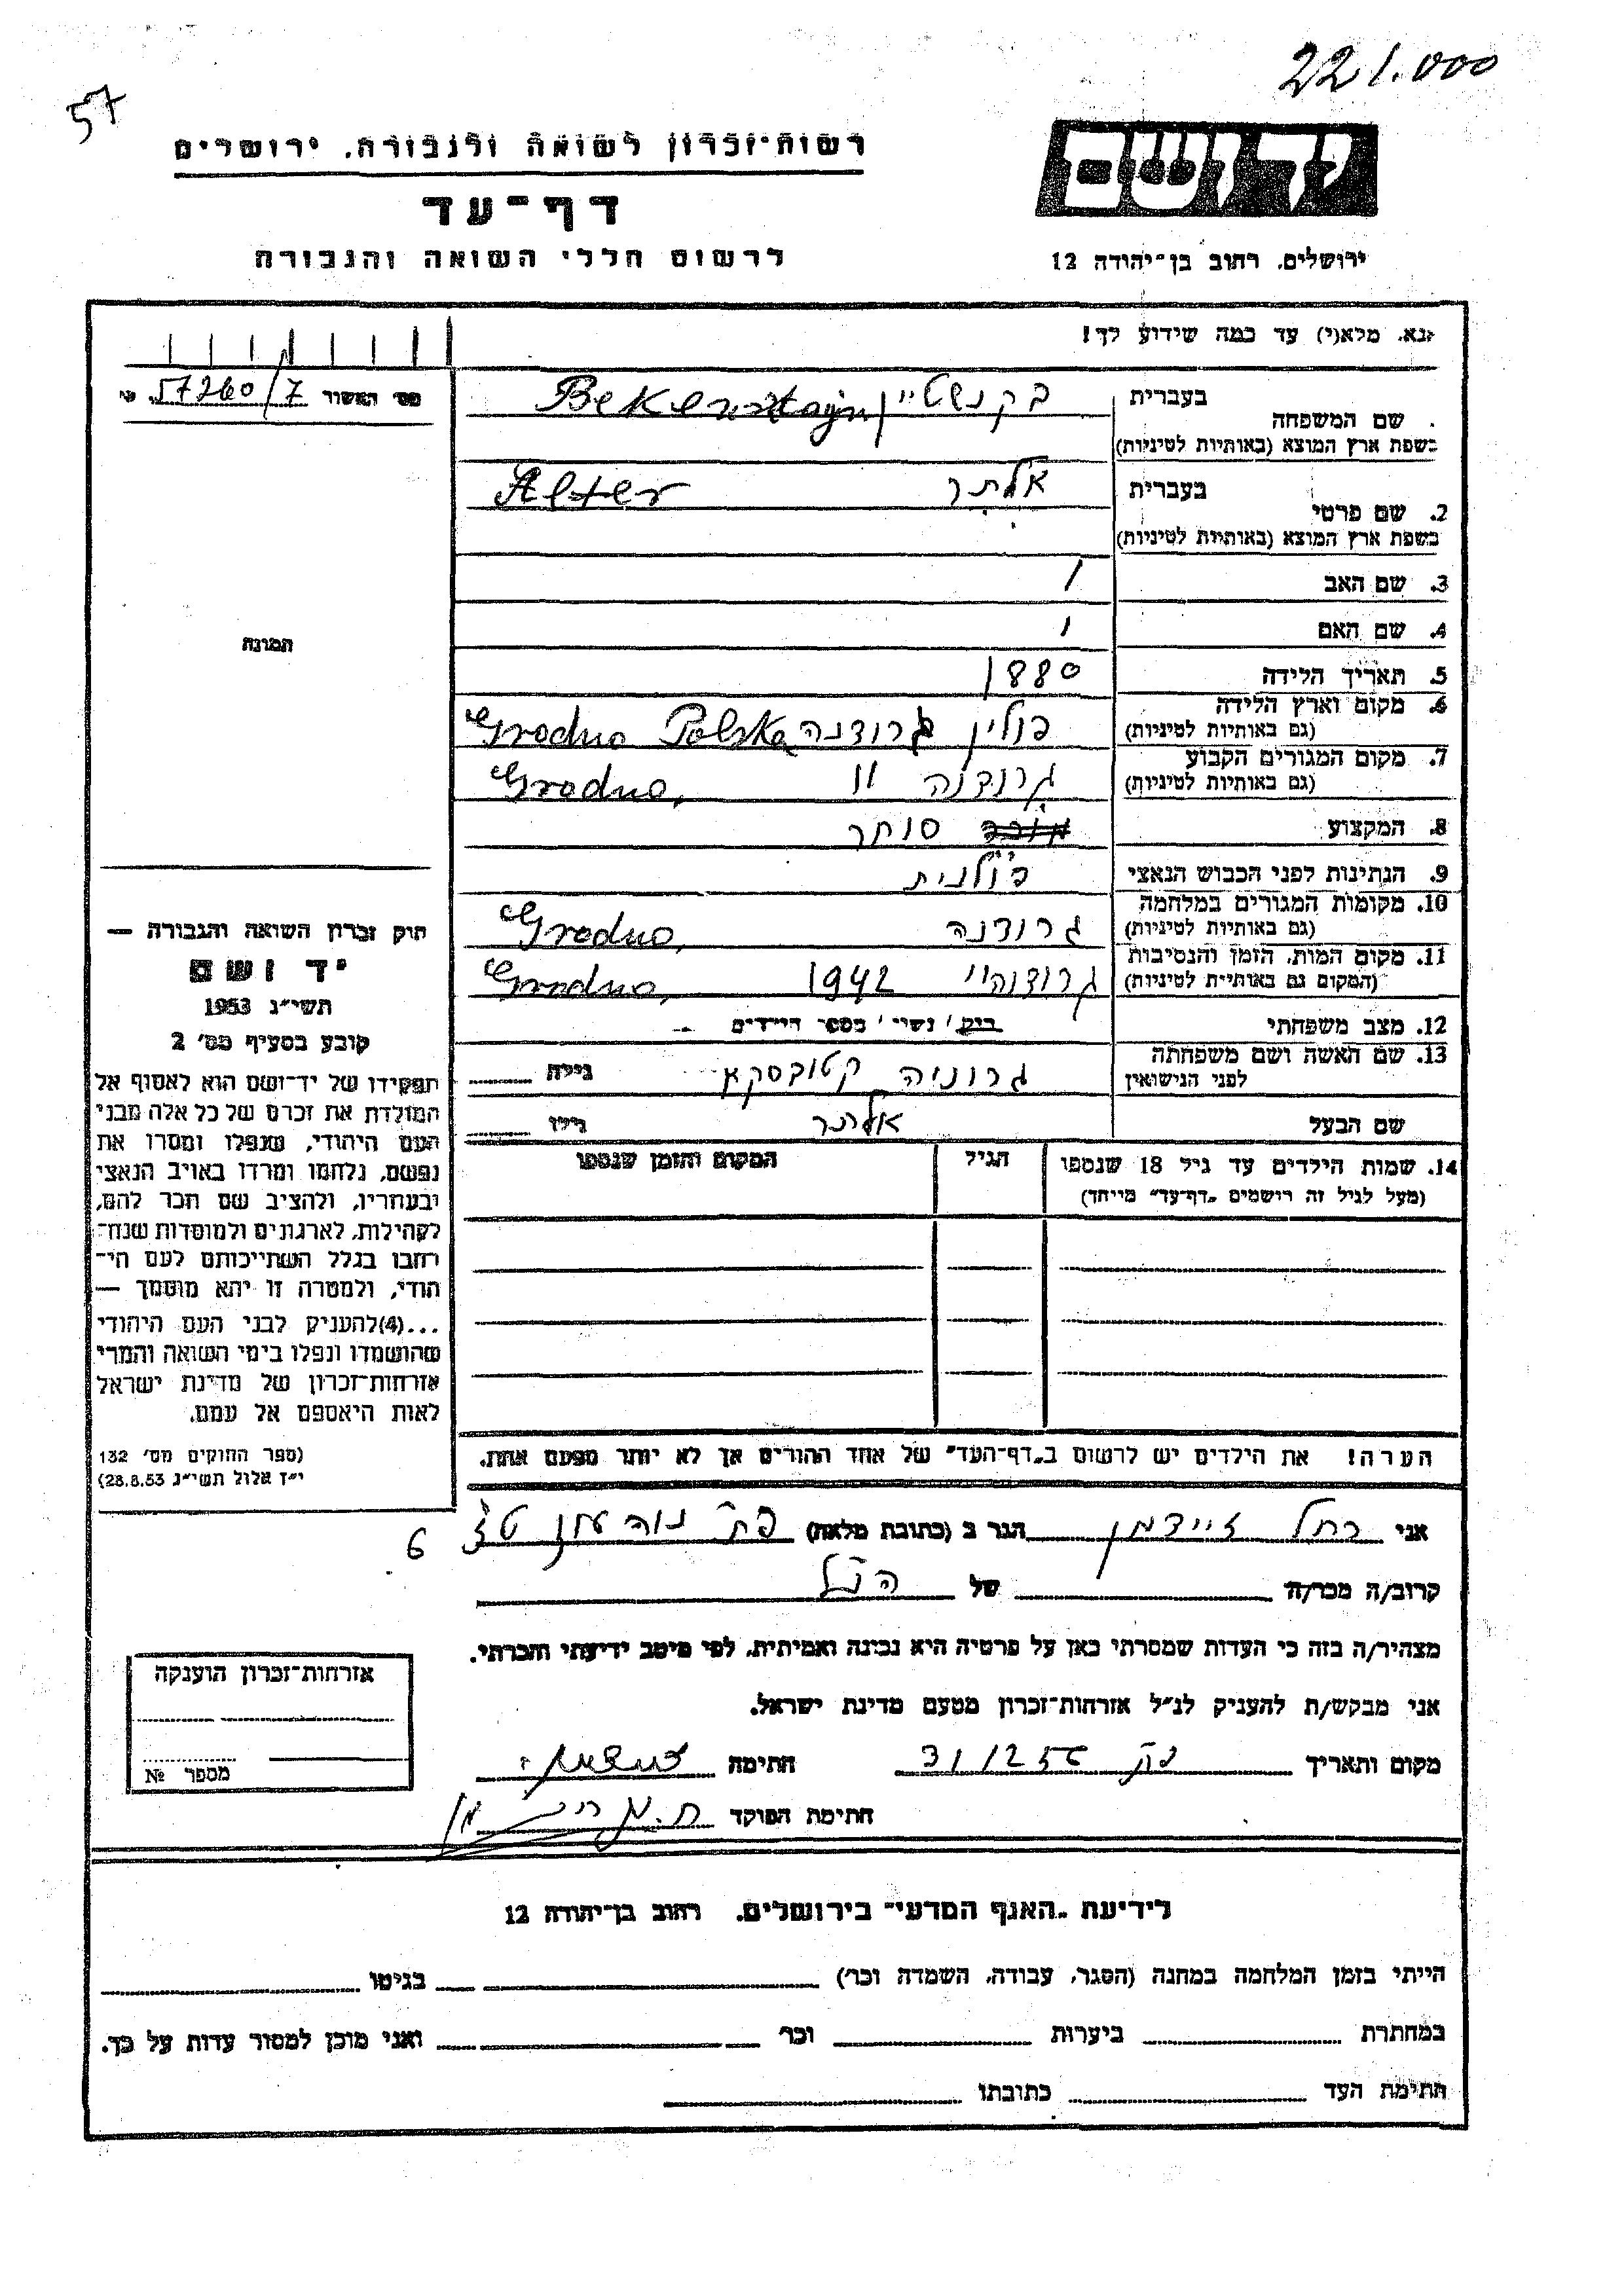 221.000
57
יד ושם
רשות־זכרון לשואה ולגבורה, ירושלים
דף־עד
לרשום חללי השואה והגבורה
ירושלים, רחוב בן־יהודה 12
נא, מלא(י) עד כמה שידוע לך!
מס' האשור 57260/7 №
בעברית בקנשטיין Bekensztajn
שם המשפחה
בשפת ארץ המוצא (באותיות לטיניות)
בעברית אלתר Alter
2. שם פרטי
בשפת ארץ המוצא (באותיות לטיניות)
3. שם האב /
4. שם האם /
תמונה
5. תאריך הלידה 1880
6. מקום וארץ הלידה פולין גרודנה Grodno Polska
(גם באותיות לטיניות)
7. מקום המגורים הקבוע גרודנה " Grodno,
(גם באותיות לטיניות)
8. המקצוע סוחר
9. הנתינות לפני הכבוש הנאצי פולנית
10. מקומות המגורים במלחמה גרודנה Grodno,
(גם באותיות לטיניות)
11. מקום המות, הזמן והנסיבות גרודנה 1942 Grodno,
(המקום גם באותיות לטיניות)
12. מצב משפחתי רוק / נשוי / מספר הילדים
13. שם האשה ושם משפחתה גרוניה גילה
לפני הנישואין
שם הבעל אלתר גילו
14. שמות הילדים עד גיל 18 שנספו הגיל המקום והזמן שנספו
(מעל לגיל זה רושמים "דף־עד" מיוחד)
חוק זכרון השואה והגבורה —
יד ושם
תשי"ג 1953
קובע בסעיף מס' 2
תפקידו של יד־ושם הוא לאסוף אל
המולדת את זכרם של כל אלה מבני
העם היהודי, שנפלו ומסרו את
נפשם, נלחמו ומרדו באויב הנאצי
ובעוזריו, ולהציב שם וזכר להם,
לקהילות, לארגונים ולמוסדות שנח־
רבו בגלל השתייכותם לעם הי־
הודי, ולמטרה זו יהא מוסמך —
...(4)להעניק לבני העם היהודי
שהושמדו ונפלו בימי השואה והמרי
אזרחות־זכרון של מדינת ישראל
לאות היאספם אל עמם.
(ספר החוקים מס' 132
י"ז אלול תשי"ג 28.8.53)
הערה! את הילדים יש לרשום ב"דף־העד" של אחד ההורים אך לא יותר מפעם אחת.
אני רחל זיידמן הגר ב (כתובת מלאה) פת נוה עוז 6
קרוב/ה מכר/ה של הנ"ל
מצהיר/ה בזה כי העדות שמסרתי כאן על פרטיה היא נכונה ואמיתית, לפי מיטב ידיעתי והכרתי.
אני מבקש/ת להעניק לנ"ל אזרחות־זכרון מטעם מדינת ישראל.
מקום ותאריך 31/12 56 חתימה
חתימת הפוקד
אזרחות־זכרון הוענקה
מספר №
לידיעת "האגף המדעי" בירושלים, רחוב בן־יהודה 12
הייתי בזמן המלחמה במחנה (הסגר, עבודה, השמדה וכו') בגיטו
במחתרת ביערות וכו' ואני מוכן למסור עדות על כך.
חתימת העד כתובתו